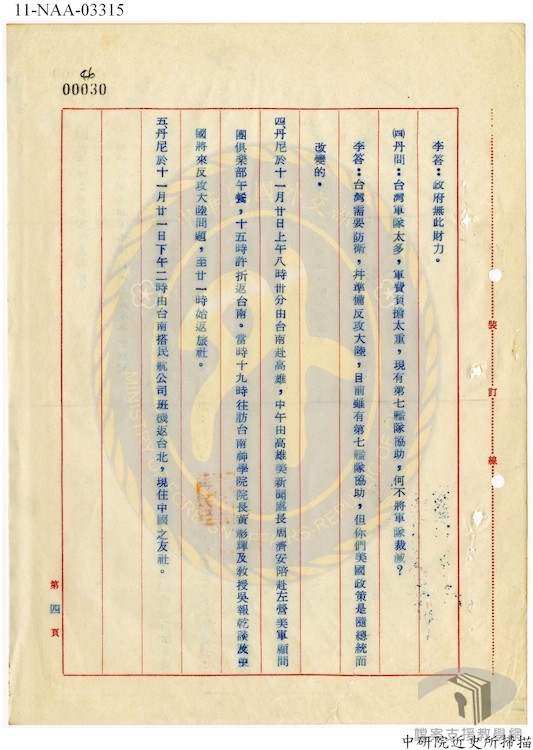 11-NAA-03315
46
00030
李答：政府無此財力。
㈣丹問：台灣軍隊太多，軍費負擔太重，現有第七艦隊協助，何不將軍隊裁減？
李答：台灣需要防衛，幷準備反攻大陸，目前雖有第七艦隊協助，但你們美國政策是隨總統而
改變的。
四、丹尼於十一月廿日上午八時卅分由台南赴高雄，中午由高雄美新聞處長周濟安陪赴左營美軍顧問
團俱樂部午餐，十五時許折返台南。當時十九時往訪台南神學院院長黃彭輝及教授吳報乾談及
國將來反攻大陸問題，至廿一時始返旅社。
五、丹尼於十一月廿一日下午二時由台南搭民航公司班機返台北，現住中國之友社。
裝訂線
第四頁
MINISTRY OF FOREIGN AFFAIRS REPUBLIC OF
檔案支援教學網
中研院近史所掃描